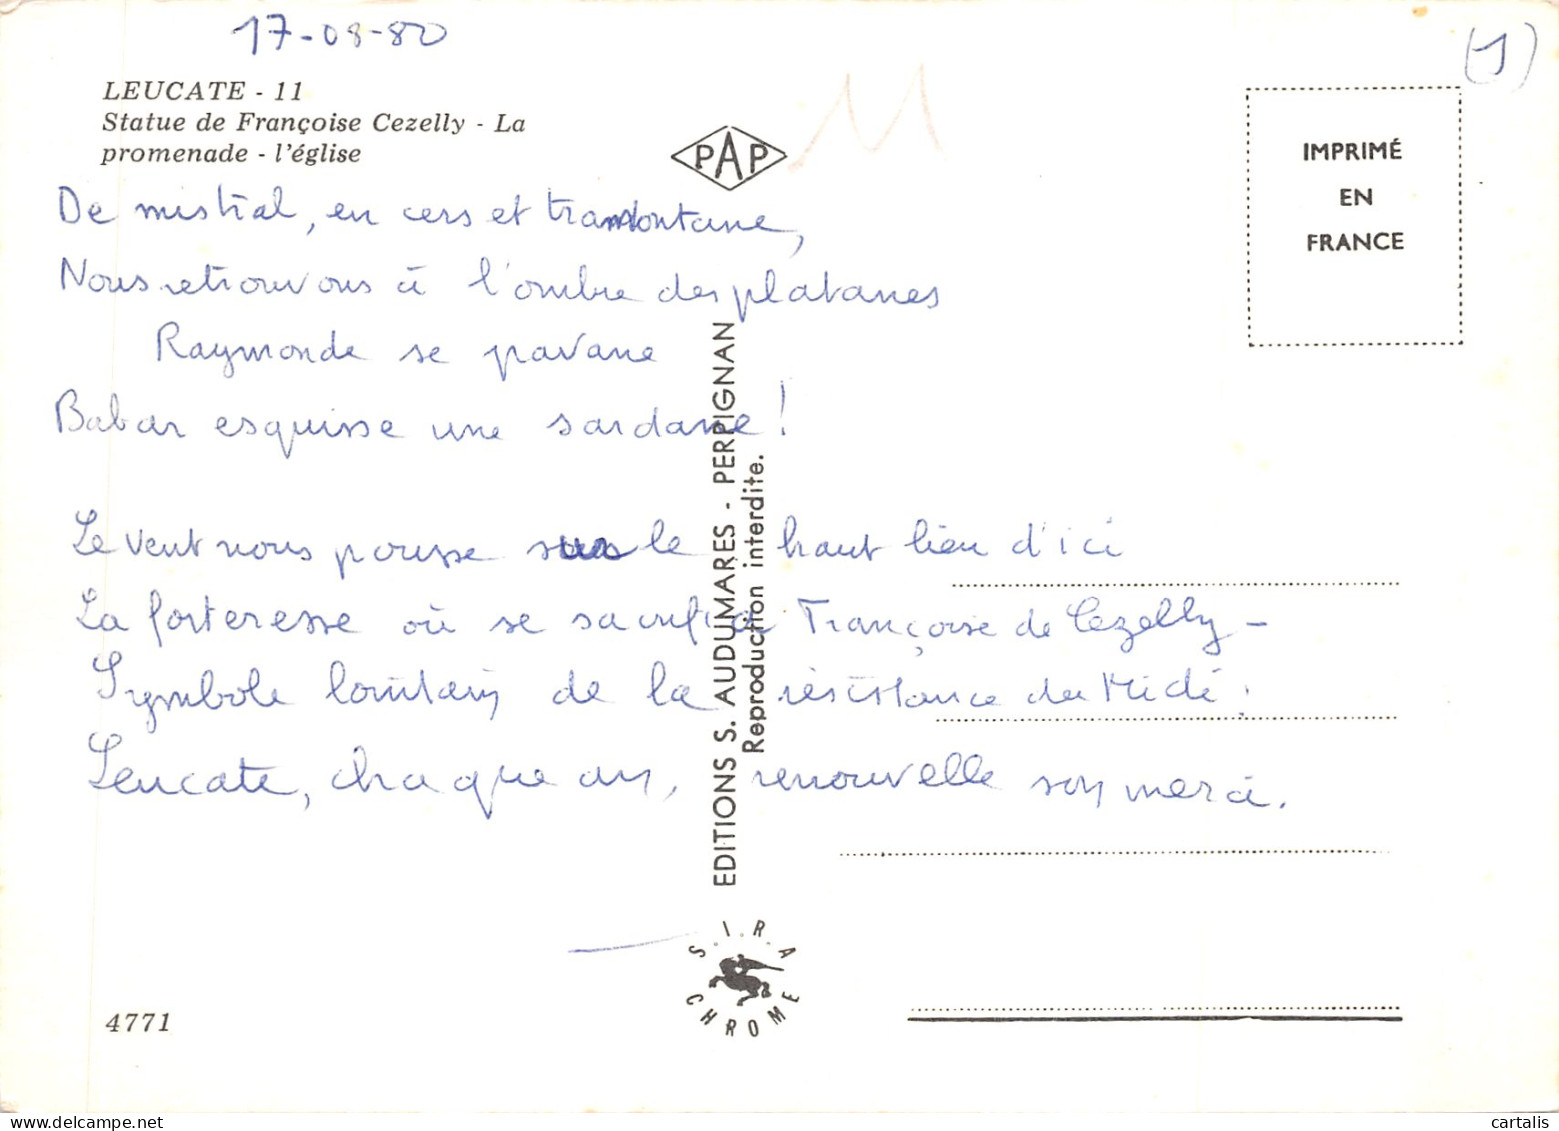 17-08-80
(1)
LEUCATE - 11
Statue de Françoise Cezelly - La
promenade - l'église
PAP
11
IMPRIMÉ
EN
FRANCE
De mistral, en cers et tramontane,
Nous retrouvons à l'ombre des platanes
Raymonde se pavane
Babar esquisse une sardane !
Le vent nous pousse sur le haut lieu d'ici
La forteresse où se sacrifia Françoise de Cezelly -
Symbole lointain de la résistance du Midi ;
Leucate, chaque an, renouvelle son merci.
EDITIONS S. AUDUMARES - PERPIGNAN
Reproduction interdite.
S.I.R.A
CHROME
4771
cartalis